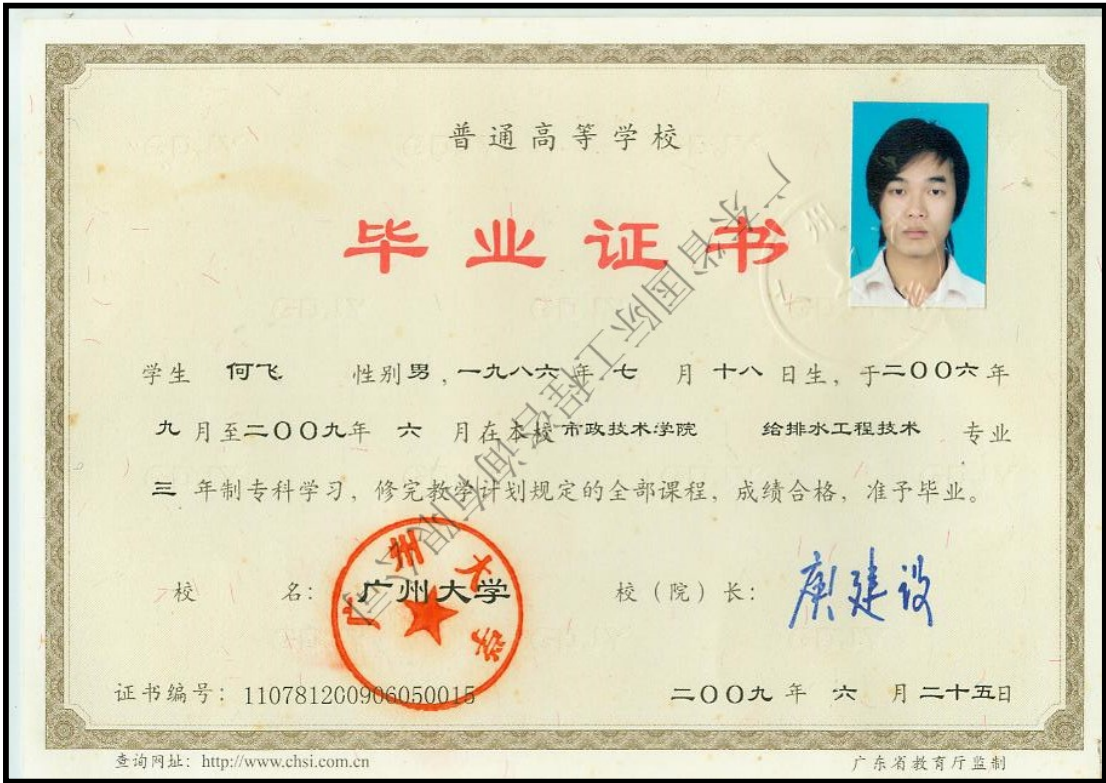 普通高等学校
毕业证书
学生 何飞 性别男，一九八六年 七 月 十八 日生，于二〇〇六年
九 月至二〇〇九年 六 月在本校市政技术学院 给排水工程技术 专业
三 年制专科学习，修完教学计划规定的全部课程，成绩合格，准予毕业。
校 名：广州大学 校（院）长：庾建设
广州大学
证书编号：110781200906050015 二〇〇九 年 六 月二十五日
查询网址：http://www.chsi.com.cn 广东省教育厅监制
广东省国际工程咨询有限公司